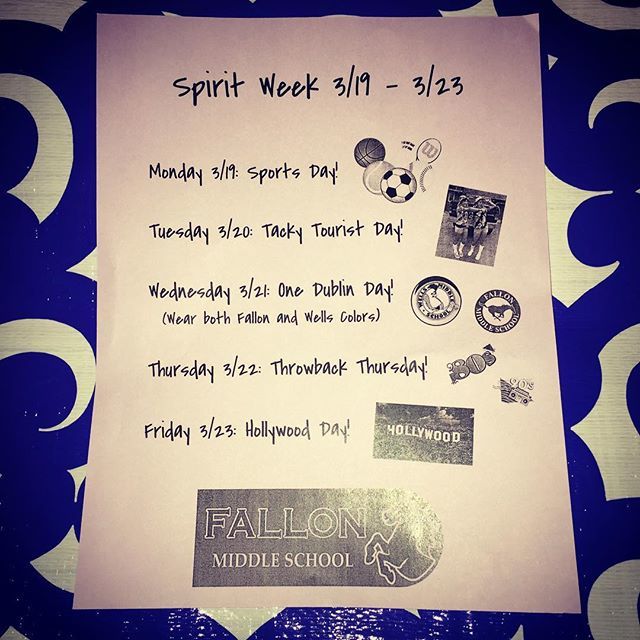 Spirit Week 3/19 - 3/23
Monday 3/19: Sports Day!
W
Tuesday 3/20: Tacky Tourist Day!
Wednesday 3/21: One Dublin Day!
(Wear both Fallon and Wells Colors)
WELLS MIDDLE
SCHOOL
FALLON
MIDDLE SCHOOL
Thursday 3/22: Throwback Thursday!
80s
90's
Friday 3/23: Hollywood Day!
HOLLYWOOD
FALLON
MIDDLE SCHOOL